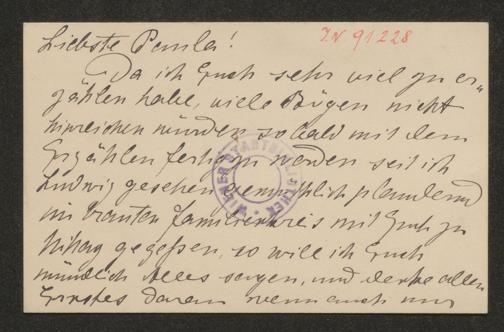 Liebste Paula!
I.N. 91228
Da ich Euch sehr viel zu er-
zählen habe, viele Bögen nicht
hinreichen würden sobald mit dem
Erzählen fertig zu werden seit ich
Ludwig gesehen, gemüthlich plaudernd
im trauten Familienkreis mit Euch zu
Mittag gegeßen, so will ich Euch
mündlich Alles sagen, und denke allen
Ernstes daran wenn auch nur
WIENER STADTBIBLIOTHEK